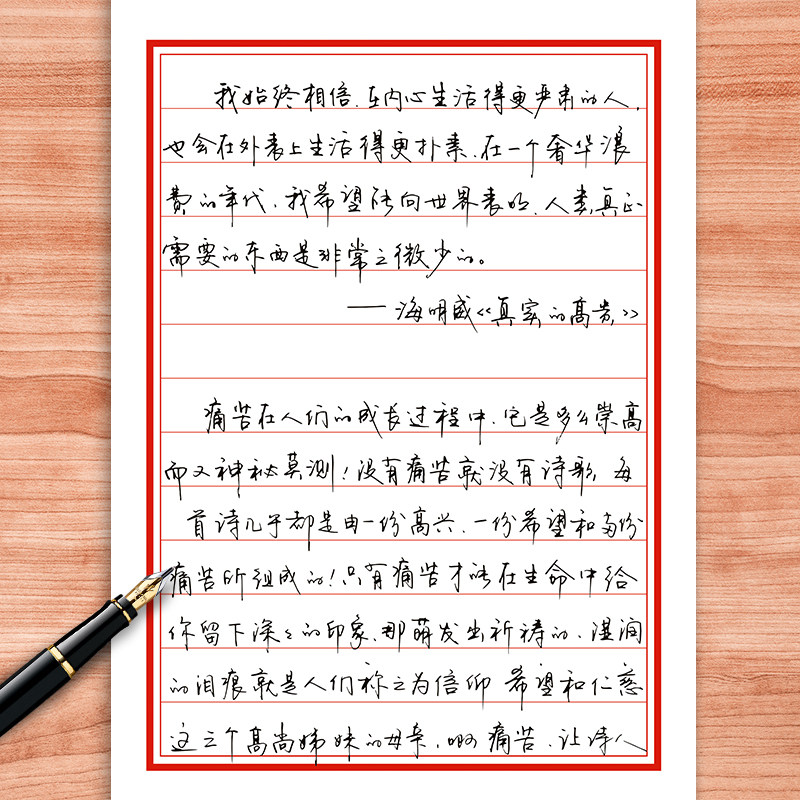 我始终相信.在内心生活得更严肃的人,
也会在外表上生活得更朴素.在一个奢华浪
费的年代.我希望能向世界表明.人类真正
需要的东西是非常之微少的。
——海明威《真实的高贵》
痛苦在人们的成长过程中.它是多么崇高
而又神秘莫测!没有痛苦就没有诗歌,每
首诗几乎都是由一份高兴.一份希望和两份
痛苦所组成的!只有痛苦才能在生命中给
你留下深深的印象.那萌发出祈祷的.湿润
的泪痕就是人们称之为信仰 希望和仁慈
这三个高尚姊妹的母亲.啊 痛苦.让诗人